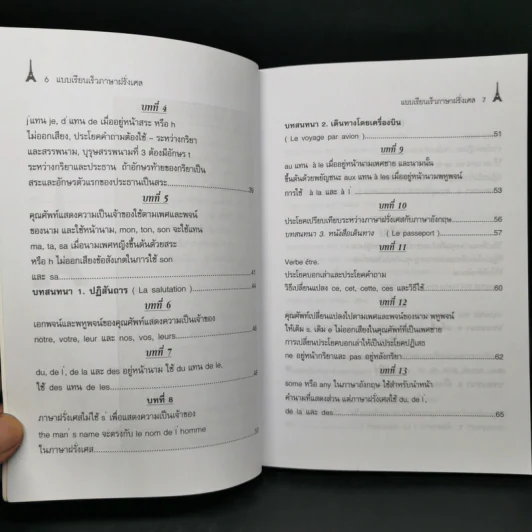 6 แบบเรียนเร็วภาษาฝรั่งเศส
บทที่ 4
j'แทน je, d' แทน de เมื่ออยู่หน้าสระ หรือ h
ไม่ออกเสียง, ประโยคคำถามต้องใช้ – ระหว่างกริยา
และสรรพนาม, บุรุษสรรพนามที่ 3 ต้องมีอักษร t
ระหว่างกริยาและประธาน ถ้าอักษรท้ายของกริยาเป็น
สระและอักษรตัวแรกของประธานเป็นสระ
บทที่ 5
คุณศัพท์แสดงความเป็นเจ้าของใช้ตามเพศและพจน์
ของนาม และใช้หน้านาม, mon, ton, son จะใช้แทน
ma, ta, sa เมื่อนามเพศหญิงขึ้นต้นด้วยสระ
หรือ h ไม่ออกเสียงข้อสังเกตในการใช้ son
และ sa 41
บทสนทนา 1. ปฏิสันถาร ( La salutation ) 44
บทที่ 6
เอกพจน์และพหูพจน์ของคุณศัพท์แสดงความเป็นเจ้าของ
notre, votre, leur และ nos, vos, leurs
บทที่ 7
du, de l', de la และ des อยู่หน้านาม ใช้ du แทน de le,
ใช้ des แทน de les
บทที่ 8
ภาษาฝรั่งเศสไม่ใช้ s' เพื่อแสดงความเป็นเจ้าของ
the man' s name จะตรงกับ le nom de l' homme
ในภาษาฝรั่งเศส
แบบเรียนเร็วภาษาฝรั่งเศส 7
บทสนทนา 2. เดินทางโดยเครื่องบิน
( Le voyage par avion ) 51
บทที่ 9
au แทน à le เมื่ออยู่หน้านามเพศชาย และนามนั้น
ขึ้นต้นด้วยพยัญชนะ aux แทน à les เมื่ออยู่หน้านามพหูพจน์
การใช้ à la และ à l' 53
บทที่ 10
ประโยคเปรียบเทียบระหว่างภาษาฝรั่งเศสกับภาษาอังกฤษ 56
บทสนทนา 3. หนังสือเดินทาง ( Le passeport ) 57
บทที่ 11
Verbe être.
ประโยคบอกเล่าและประโยคคำถาม
วิธีเปลี่ยนแปลง ce, cet, cette, ces และวิธีใช้ 60
บทที่ 12
คุณศัพท์เปลี่ยนแปลงไปตามเพศและพจน์ของนาม พหูพจน์
ให้เติม s, เติม e ไม่ออกเสียงในคุณศัพท์ที่เป็นเพศชาย
การเปลี่ยนประโยคบอกเล่าให้เป็นประโยคปฏิเสธ
ne อยู่หน้ากริยาและ pas อยู่หลังกริยา 62
บทที่ 13
some หรือ any ในภาษาอังกฤษ ใช้สำหรับนำหน้า
คำนามที่แสดงส่วน แต่ภาษาฝรั่งเศสใช้ du, de l',
de la และ des 65